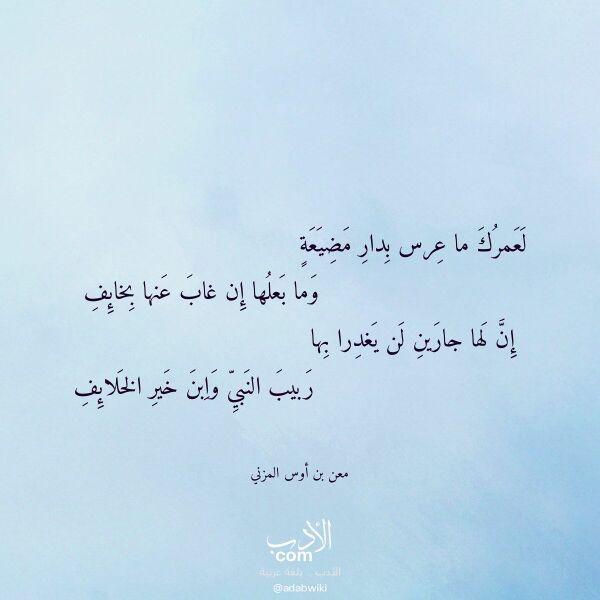 لَعَمرُكَ ما عِرس بِدارِ مَضِيَعَةٍ
وَما بَعلُها إِن غابَ عَنها بِخايِٕفِ
إِنَّ لَها جارَينِ لَن يَغدِرا بِها
رَبيبَ النَبيِّ وَاِبنَ خَيرِ الخَلايِٕفِ
معن بن أوس المزني
الأدب
com
الأدب .. بلغة عربية
@adabwiki